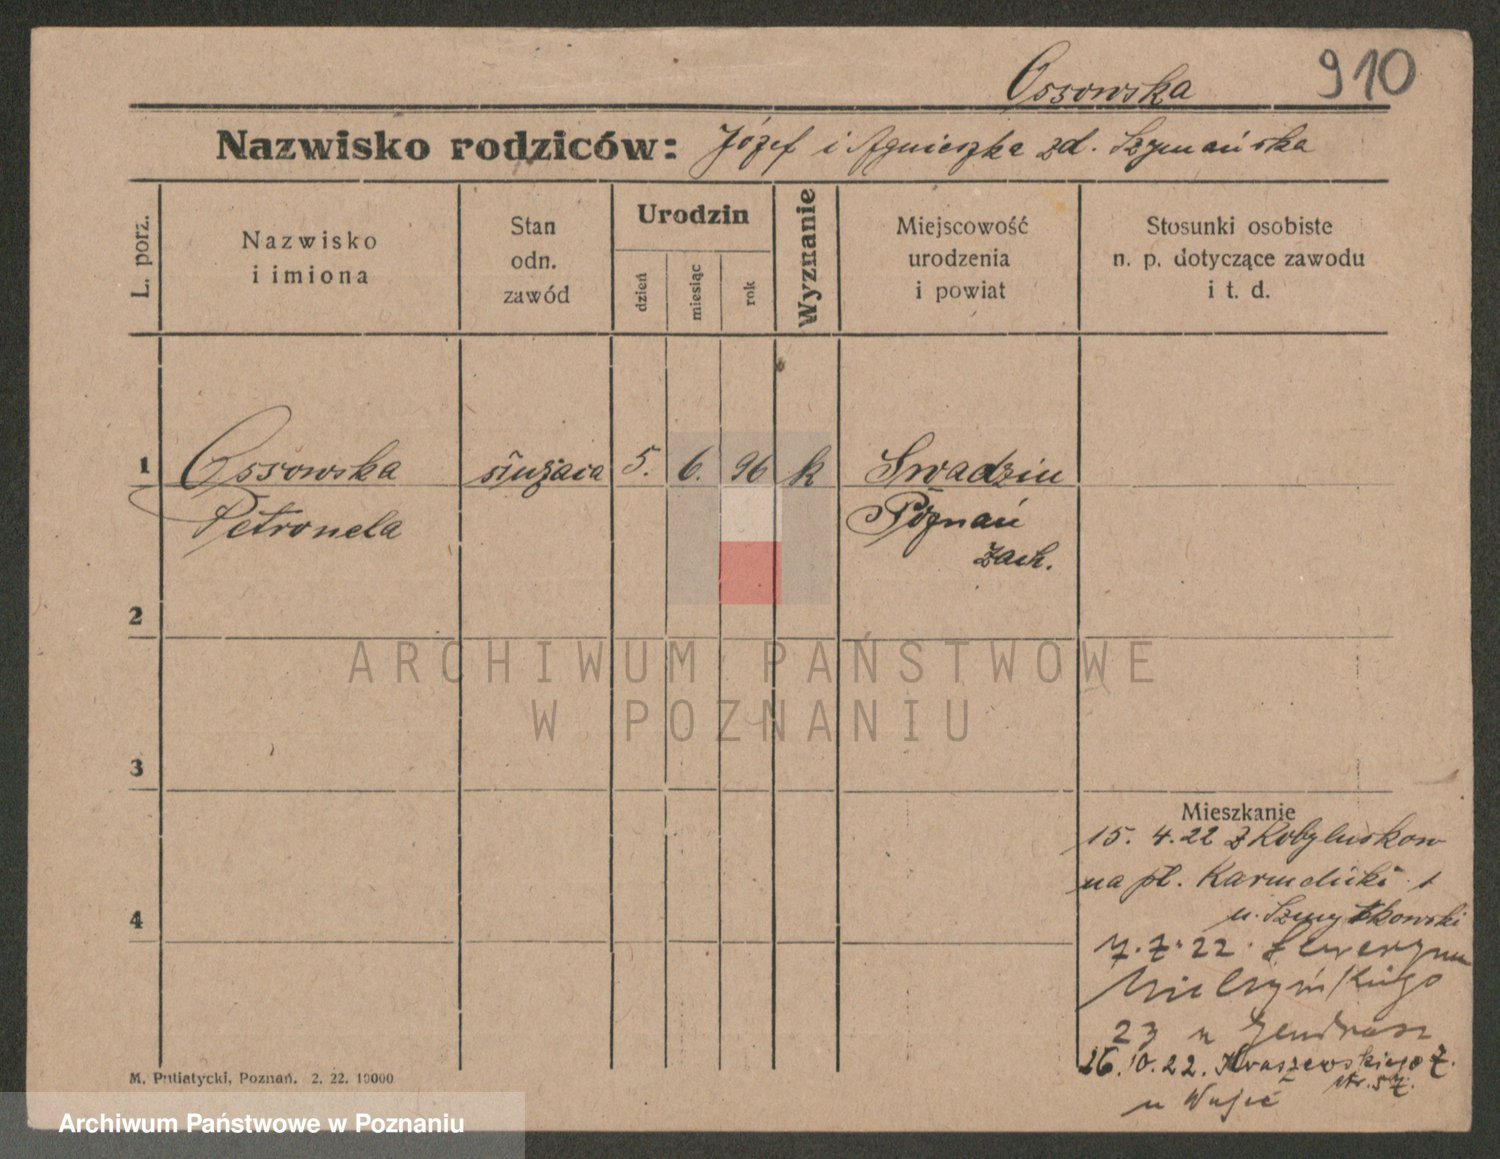 Ossowska 910
Nazwisko rodziców: Józef i Agnieszka zd. Szymańska
L. porz.
Nazwisko
i imiona
Stan
odn.
zawód
Urodzin
dzień
miesiąc
rok
Wyznanie
Miejscowość
urodzenia
i powiat
Stosunki osobiste
n. p. dotyczące zawodu
i t. d.
1 Ossowska służąca 5. 6. 96 k Swadzim
Petronela Poznań
zach.
2
ARCHIWUM PAŃSTWOWE
W POZNANIU
3
Mieszkanie
15. 4. 22 z
na pl. Karmelicki 1
u. Szmytkowski
4
7. 7. 22. Seweryna
Mielżyńskiego
23 u
26. 10. 22. Kraszewskiego 7.
u
M. Putiatycki, Poznań. 2. 22. 10000
Archiwum Państwowe w Poznaniu